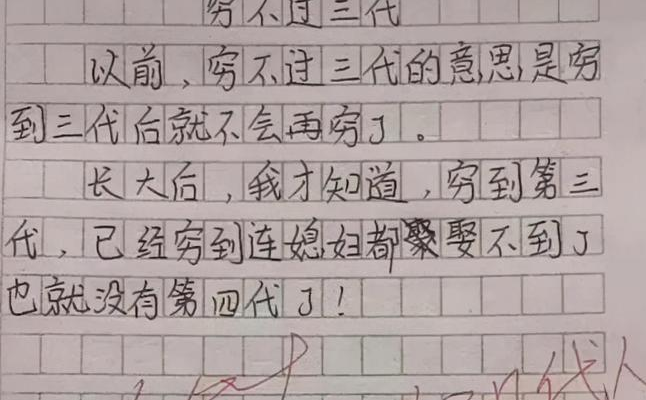 穷不过三代
以前，穷不过三代的意思是穷
到三代后就不会再穷了。
长大后，我才知道，穷到第三
代，已经穷到连媳妇都娶不到了
也就没有第四代了！
代人